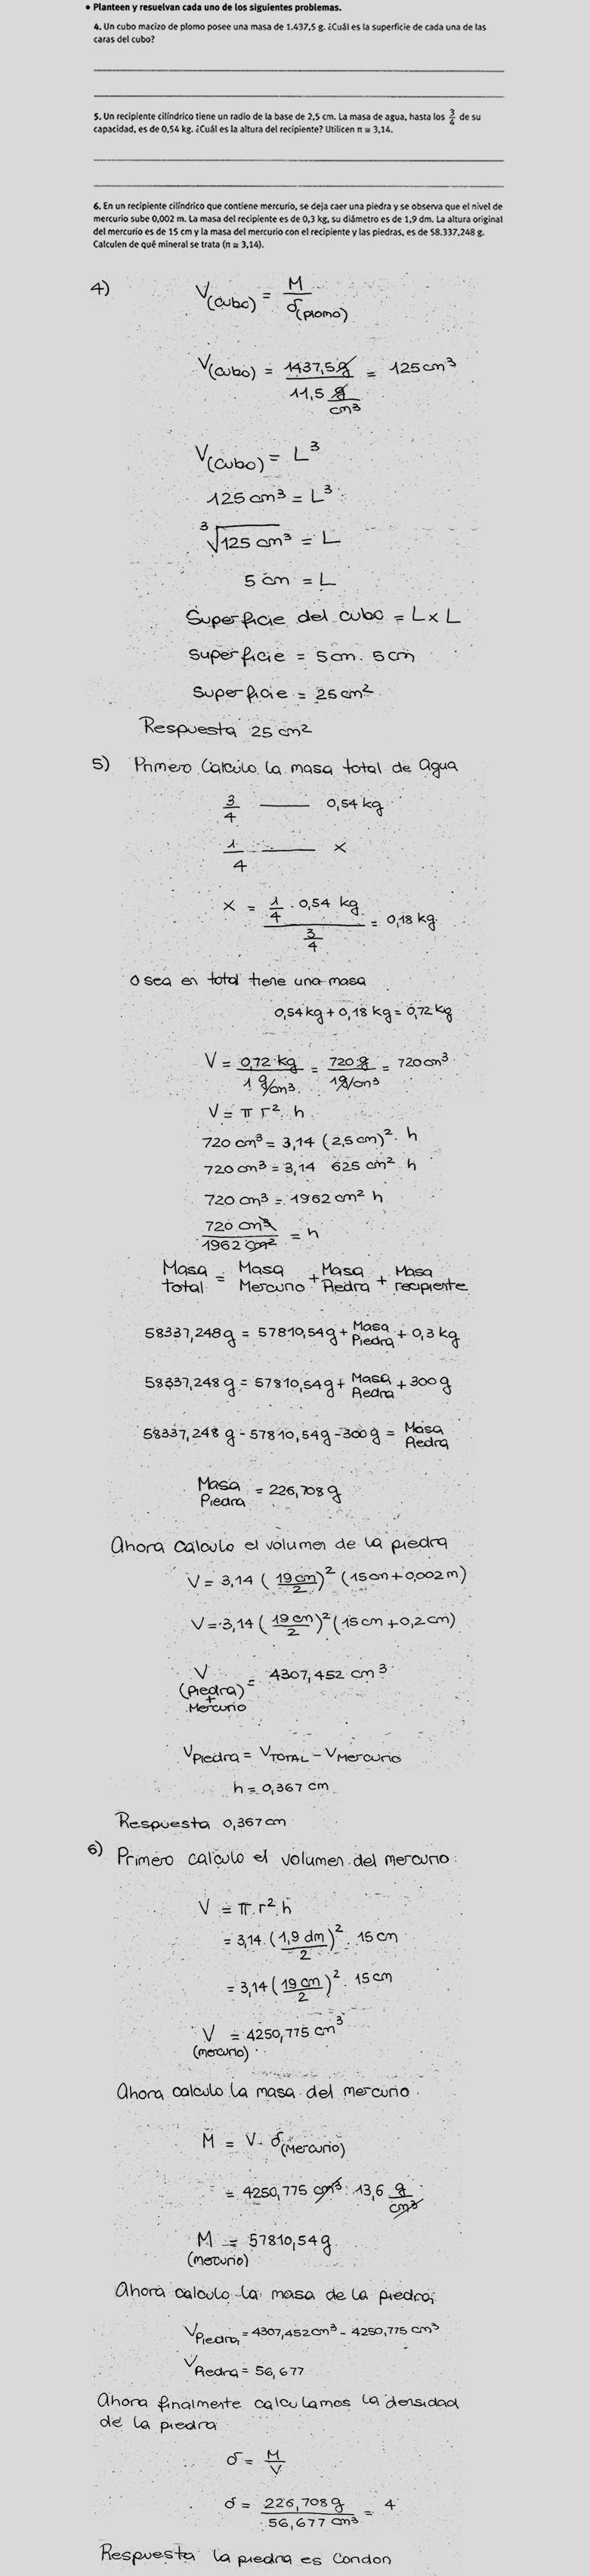 • Planteen y resuelvan cada uno de los siguientes problemas.
4. Un cubo macizo de plomo posee una masa de 1.437,5 g. ¿Cuál es la superficie de cada una de las
caras del cubo?
5. Un recipiente cilíndrico tiene un radio de la base de 2,5 cm. La masa de agua, hasta los 3/4 de su
capacidad, es de 0,54 kg. ¿Cuál es la altura del recipiente? Utilicen π ≅ 3,14.
6. En un recipiente cilíndrico que contiene mercurio, se deja caer una piedra y se observa que el nivel de
mercurio sube 0,002 m. La masa del recipiente es de 0,3 kg, su diámetro es de 1,9 dm. La altura original
del mercurio es de 15 cm y la masa del mercurio con el recipiente y las piedras, es de 58.337,248 g.
Calculen de qué mineral se trata (π ≅ 3,14).
4) V(cubo) = M / δ(plomo)
V(cubo) = 1437,5 g / 11,5 g/cm³ = 125 cm³
V(cubo) = L³
125 cm³ = L³
³√125 cm³ = L
5 cm = L
Superficie del cubo = L x L
Superficie = 5cm . 5cm
Superficie = 25 cm²
Respuesta 25 cm²
5) Primero Calculo la masa total de Agua
3/4 —— 0,54 kg
1/4 —— x
x = 1/4 . 0,54 kg / 3/4 = 0,18 kg
O sea en total tiene una masa
0,54 kg + 0,18 kg = 0,72 kg
V = 0,72 kg / 1 g/cm³ = 720 g / 1 g/cm³ = 720 cm³
V = π r² . h
720 cm³ = 3,14 (2,5 cm)² . h
720 cm³ = 3,14 625 cm² h
720 cm³ = 1962 cm² h
720 cm³ / 1962 cm² = h
Masa total = Masa Mercurio + Masa Piedra + Masa recipiente
58337,248 g = 57810,54 g + Masa Piedra + 0,3 kg
58337,248 g = 57810,54 g + Masa Piedra + 300 g
58337,248 g - 57810,54 g - 300 g = Masa Piedra
Masa Piedra = 226,708 g
Ahora calculo el volumen de la piedra
V = 3,14 (19 cm / 2)² (15 cm + 0,002 m)
V = 3,14 (19 cm / 2)² (15 cm + 0,2 cm)
V (Piedra + Mercurio) = 4307,452 cm³
V Piedra = V TOTAL - V Mercurio
h = 0,367 cm
Respuesta 0,367 cm
6) Primero calculo el volumen del mercurio
V = π . r² . h
= 3,14 . (1,9 dm / 2)² . 15 cm
= 3,14 (19 cm / 2)² . 15 cm
V (mercurio) = 4250,775 cm³
Ahora calculo la masa del mercurio
M = V . δ(Mercurio)
= 4250,775 cm³ . 13,6 g/cm³
M (mercurio) = 57810,54 g
Ahora calculo la masa de la piedra
V Piedra = 4307,452 cm³ - 4250,775 cm³
V Piedra = 56,677
Ahora finalmente calculamos la densidad
de la piedra
δ = M / V
δ = 226,708 g / 56,677 cm³ = 4
Respuesta la piedra es Condon